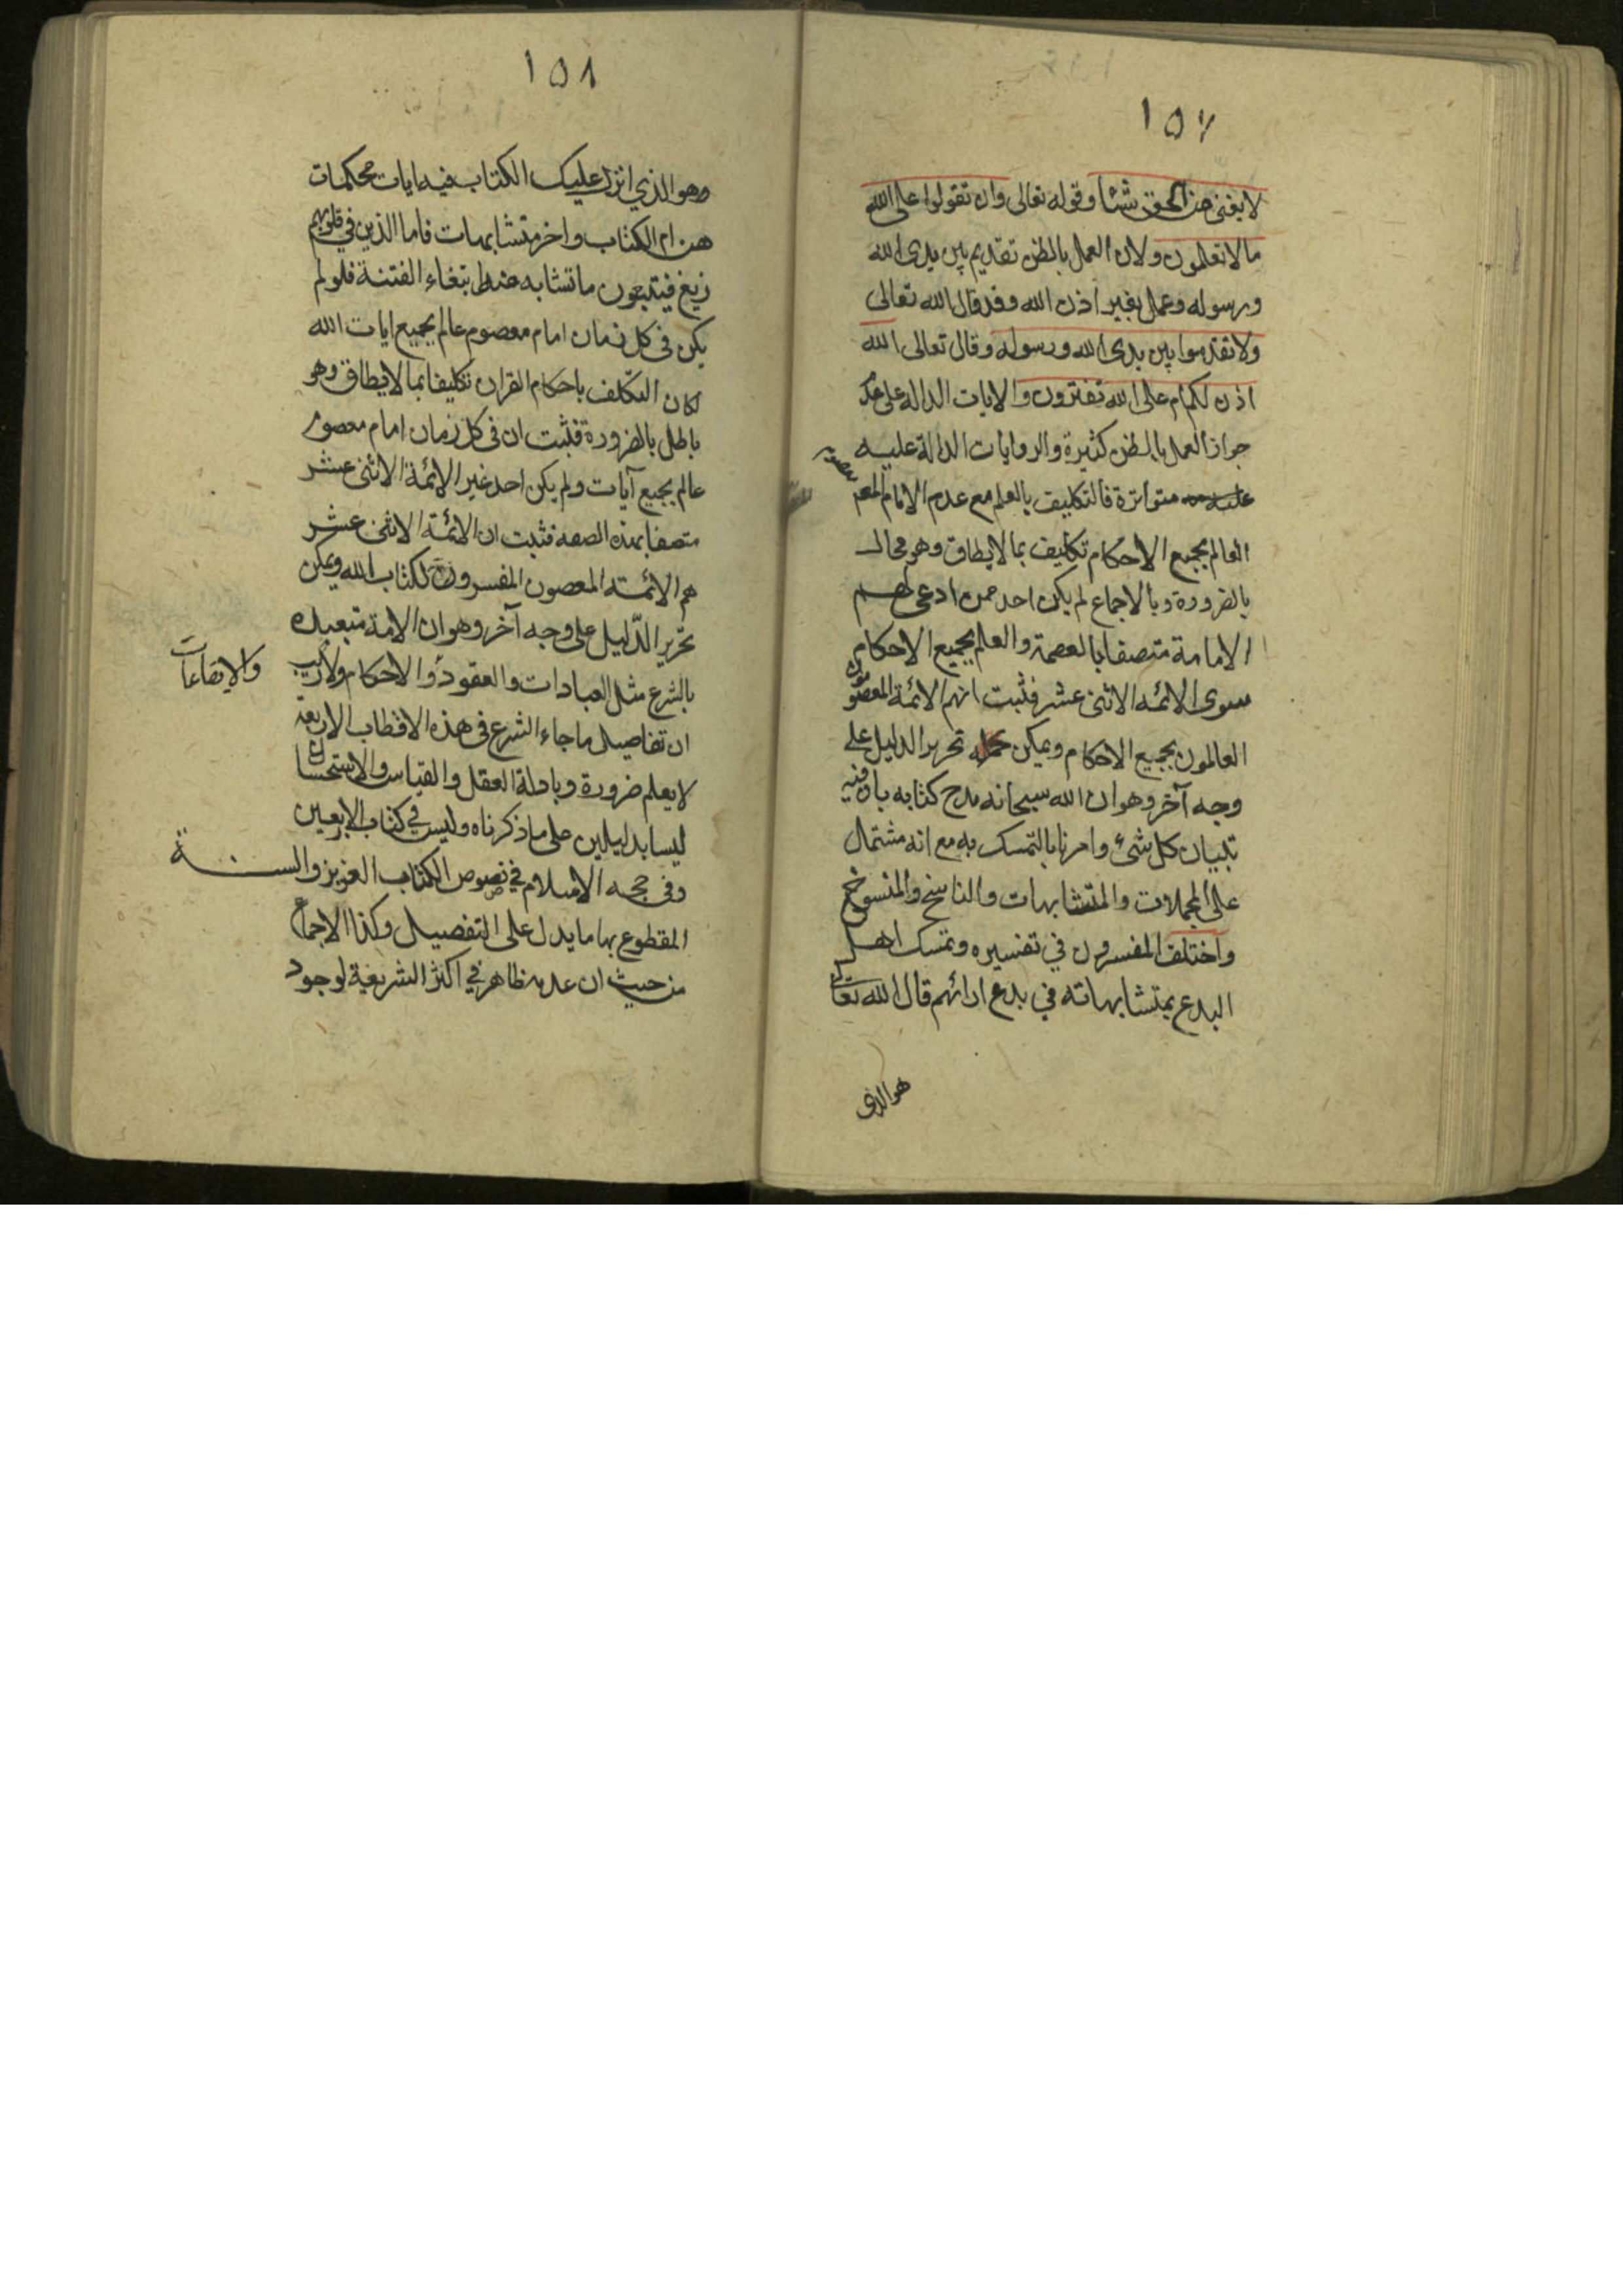 ١٥٧
لا يغنى من الحق شئا وقوله تعالى وان تقولوا على الله
ما لا تعلمون ولان العمل بالظن تقديم بين يدى الله
ورسوله وعمل بغير اذن الله وقد قال الله تعالى
ولا تقدموا بين يدى الله ورسوله وقال تعالى الله
اذن لكم ام على الله تفترون والايات الدالة على عدم
جواز العمل بالظن كثيرة والروايات الدالة عليه
متواترة فالتكليف بالعلم مع عدم الامام المعصوم
العالم بجميع الاحكام تكليف بما لا يطاق وهو محال
بالضرورة وبالاجماع لم يكن احد ممن ادعى لهم
الامامة متصفا بالعصمة والعلم بجميع الاحكام
سوى الائمه الاثنى عشر فثبت انهم الائمة المعصومون
العالمون بجميع الاحكام ويمكن تحرير الدليل على
وجه آخر وهو ان الله سبحانه مدح كتابه بان فيه
تبيان كل شئ وامرنا بالتمسك به مع انه مشتمل
على المجملات والمتشابهات والناسخ والمنسوخ
واختلف المفسرون في تفسيره وتمسك اهل
البدع بمتشابهاته في بدع ارائهم قال الله تعالى
هو الذى
١٥٨
وهو الذي انزل عليك الكتاب فيه ايات محكمات
هن ام الكتاب واخر متشابهات فاما الذين في قلوبهم
زيغ فيتبعون ما تشابه منه ابتغاء الفتنة فلو لم
يكن فى كل زمان امام معصوم عالم بجميع ايات الله
لكان التكلف باحكام القران تكليفا بما لا يطاق وهو
باطل بالضرورة فثبت ان فى كل زمان امام معصوم
عالم بجميع آيات ولم يكن احد غير الائمة الاثنى عشر
متصفا بهذه الصفه فثبت ان الائمة الاثنى عشر
هم الائمة المعصون المفسرون لكتاب الله ويمكن
تحرير الدّليل على وجه آخر وهو ان الامة متعبده
بالشرع مثل العبادات والعقود والاحكام ولا ريب
والايقاعات
ان تفاصيل ما جاء الشرع فى هذه الاقطاب الاربعة
لا يعلم ضرورة وبادلة العقل والقياس والاستحسان
ليسا بدليلين على ما ذكرناه وليس في كتاب الاربعين
وفى حجه الاسلام في نصوص الكتاب العزيز والسنة
المقطوع بها ما يدل على التفصيل وكذا الاجماع
من حيث ان عدمه ظاهر في اكثر الشريعة لوجود